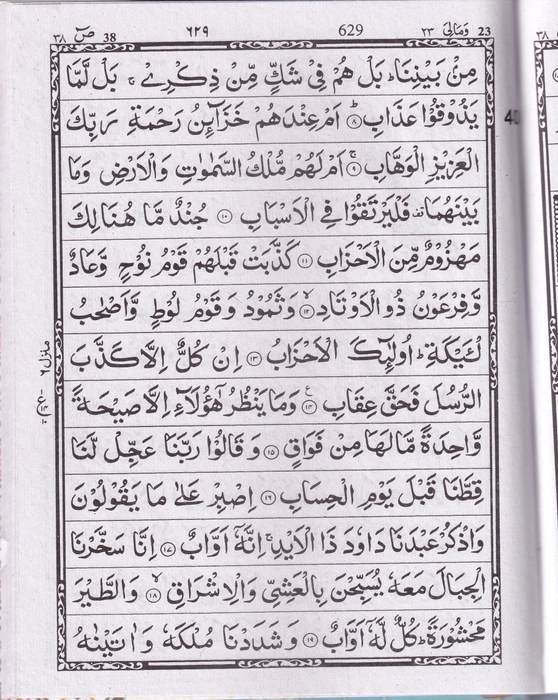 ٢٣ وَمَالِیَ 23 629 ٦٢٩ صٓ 38 ٣٨
مِنْۢ بَیْنِنَا ؕ بَلْ هُمْ فِیْ شَكٍّ مِّنْ ذِكْرِیْ ۚ بَلْ لَّمَّا
یَذُوْقُوْا عَذَابِ ؕ ﴿۸﴾ اَمْ عِنْدَهُمْ خَزَآئِنُ رَحْمَةِ رَبِّكَ
الْعَزِیْزِ الْوَهَّابِ ۚ ﴿۹﴾ اَمْ لَهُمْ مُّلْكُ السَّمٰوٰتِ وَالْاَرْضِ وَمَا
بَیْنَهُمَا ۫ فَلْیَرْتَقُوْا فِی الْاَسْبَابِ ﴿۱۰﴾ جُنْدٌ مَّا هُنَالِكَ
مَهْزُوْمٌ مِّنَ الْاَحْزَابِ ﴿۱۱﴾ كَذَّبَتْ قَبْلَهُمْ قَوْمُ نُوْحٍ وَّعَادٌ
وَّفِرْعَوْنُ ذُو الْاَوْتَادِ ۙ ﴿۱۲﴾ وَثَمُوْدُ وَقَوْمُ لُوْطٍ وَّاَصْحٰبُ
لْـَٔیْكَةِ ؕ اُولٰٓئِكَ الْاَحْزَابُ ﴿۱۳﴾ اِنْ كُلٌّ اِلَّا كَذَّبَ
الرُّسُلَ فَحَقَّ عِقَابِ ۠ ﴿۱۴﴾ وَمَا یَنْظُرُ هٰۤؤُلَآءِ اِلَّا صَیْحَةً
وَّاحِدَةً مَّا لَهَا مِنْ فَوَاقٍ ﴿۱۵﴾ وَقَالُوْا رَبَّنَا عَجِّلْ لَّنَا
قِطَّنَا قَبْلَ یَوْمِ الْحِسَابِ ﴿۱۶﴾ اِصْبِرْ عَلٰی مَا یَقُوْلُوْنَ
وَاذْكُرْ عَبْدَنَا دَاوٗدَ ذَا الْاَیْدِ ۚ اِنَّهٗۤ اَوَّابٌ ﴿۱۷﴾ اِنَّا سَخَّرْنَا
الْجِبَالَ مَعَهٗ یُسَبِّحْنَ بِالْعَشِیِّ وَالْاِشْرَاقِ ۙ ﴿۱۸﴾ وَالطَّیْرَ
مَحْشُوْرَةً ؕ كُلٌّ لَّهٗۤ اَوَّابٌ ﴿۱۹﴾ وَشَدَدْنَا مُلْكَهٗ وَاٰتَیْنٰهُ
منزل ٦